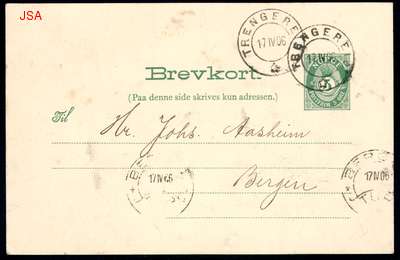 JSA
TRENGEREID
17 IV 06
TRENGEREID
17 IV 06
Brevkort.
(Paa denne side skrives kun adressen.)
Til
Hr. Johs. Aasheim
Bergen
17 IV 06
17 IV 06